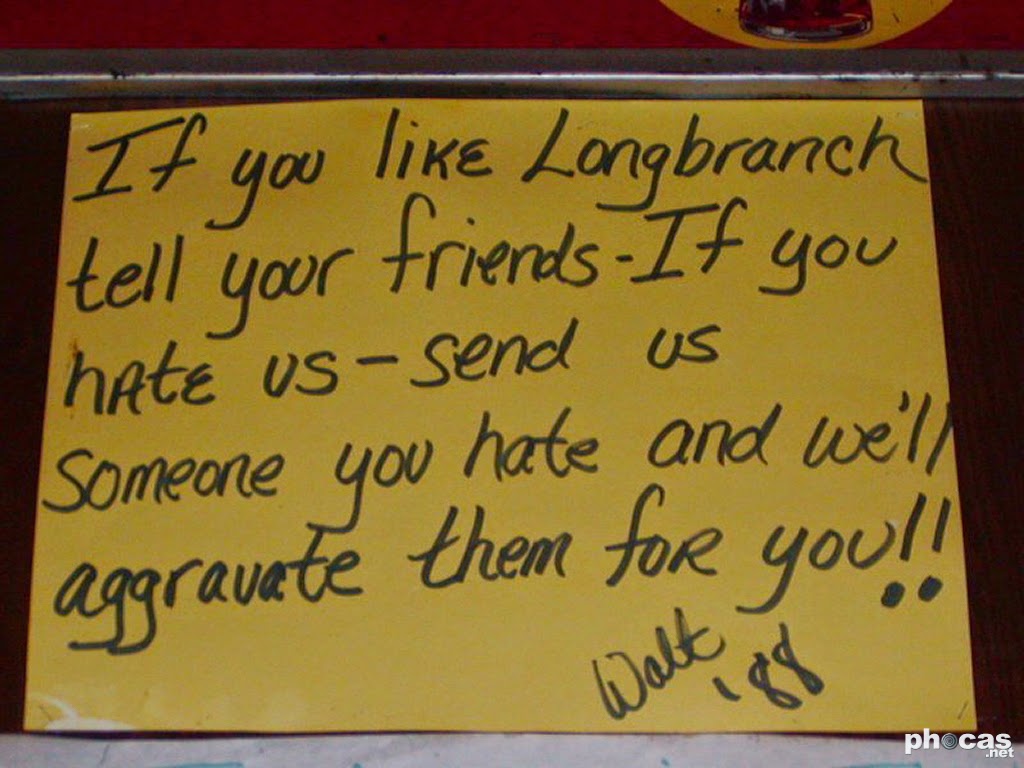 If you likE Longbranch
tell your friends-If you
hAtE us-send us
someone you hate and we'll
aggravate them foR you!!
Walt '88
phocas
.net